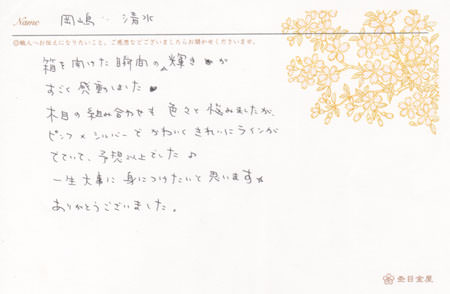 Name 岡嶋・清水
◎職人へお伝えになりたいこと、ご感想などございましたらお聞かせくださいませ。
箱を開けた瞬間の輝きが
すごく感動しました
木目の組み合わせも色々と悩みましたが、
ピンク×シルバーでかわいくきれいにラインが
でていて、予想以上でした♪
一生大事に身につけたいと思います☆
ありがとうございました。
杢目金屋